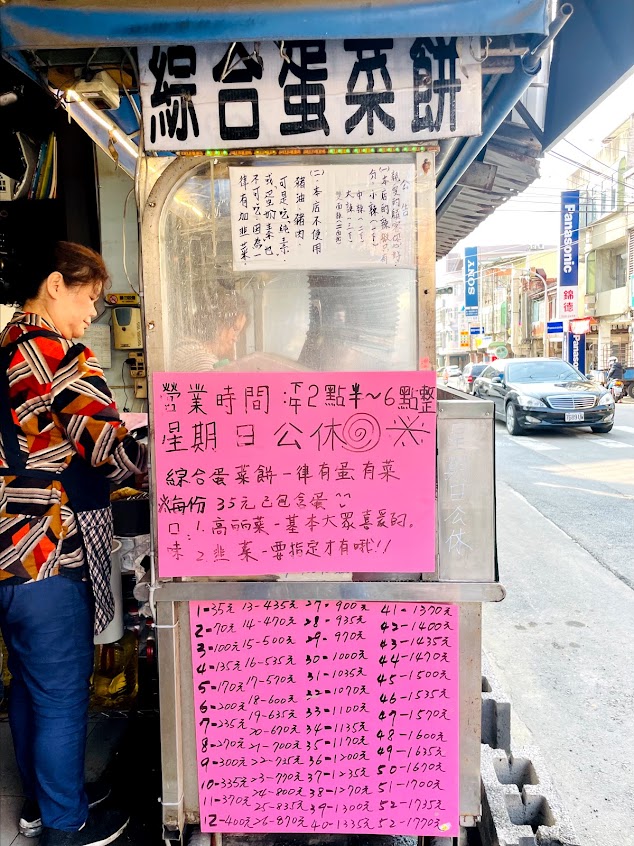 綜合蛋菜餅
(一)本店的辣椒
分、小辣(一下)
中辣(二下)
大辣(三下)
(二)本店不使用
豬油、豬肉。
可是吃純素
或是奶素也
不可吃。因為一
律有加韭菜。
營業時間:下午2點半~6點整
星期日公休
綜合蛋菜餅一律有蛋有菜
每份 35元已包含蛋
口:1.高麗菜-基本大眾喜愛的。
味 2.韭菜-要指定才有哦!!
1=35元 13-435元 27-900元 41-1370元
2=70元 14-470元 28-935元 42-1400元
3=100元 15-500元 29-970元 43-1435元
4=135元 16-535元 30-1000元 44-1470元
5=170元 17-570元 31-1035元 45-1500元
6=200元 18-600元 32-1070元 46-1535元
7=235元 19-635元 33-1100元 47-1570元
8=270元 20-670元 34-1135元 48-1600元
9=300元 21-700元 35-1170元 49-1635元
10=335元 22-735元 36-1200元 50-1670元
11=370元 23-770元 37-1235元 51-1700元
12-400元 24-800元 38-1270元 52-1735元
25-835元 39-1300元 52-1770元
26-870元 40-1335元
Panasonic
錦德
SONY
Panasonic
公休